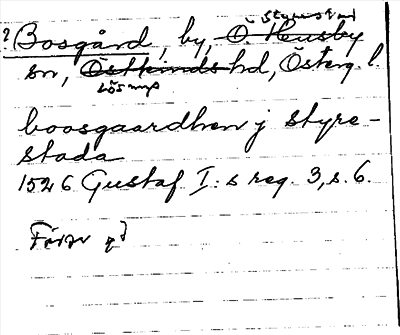 ? Bosgård, by, Ö. Husby
sn, Östkinds hd, Österg. l.
Lösings
boosgaardhen j styre-
stada
1526 Gustaf I:s reg. 3, s. 6.